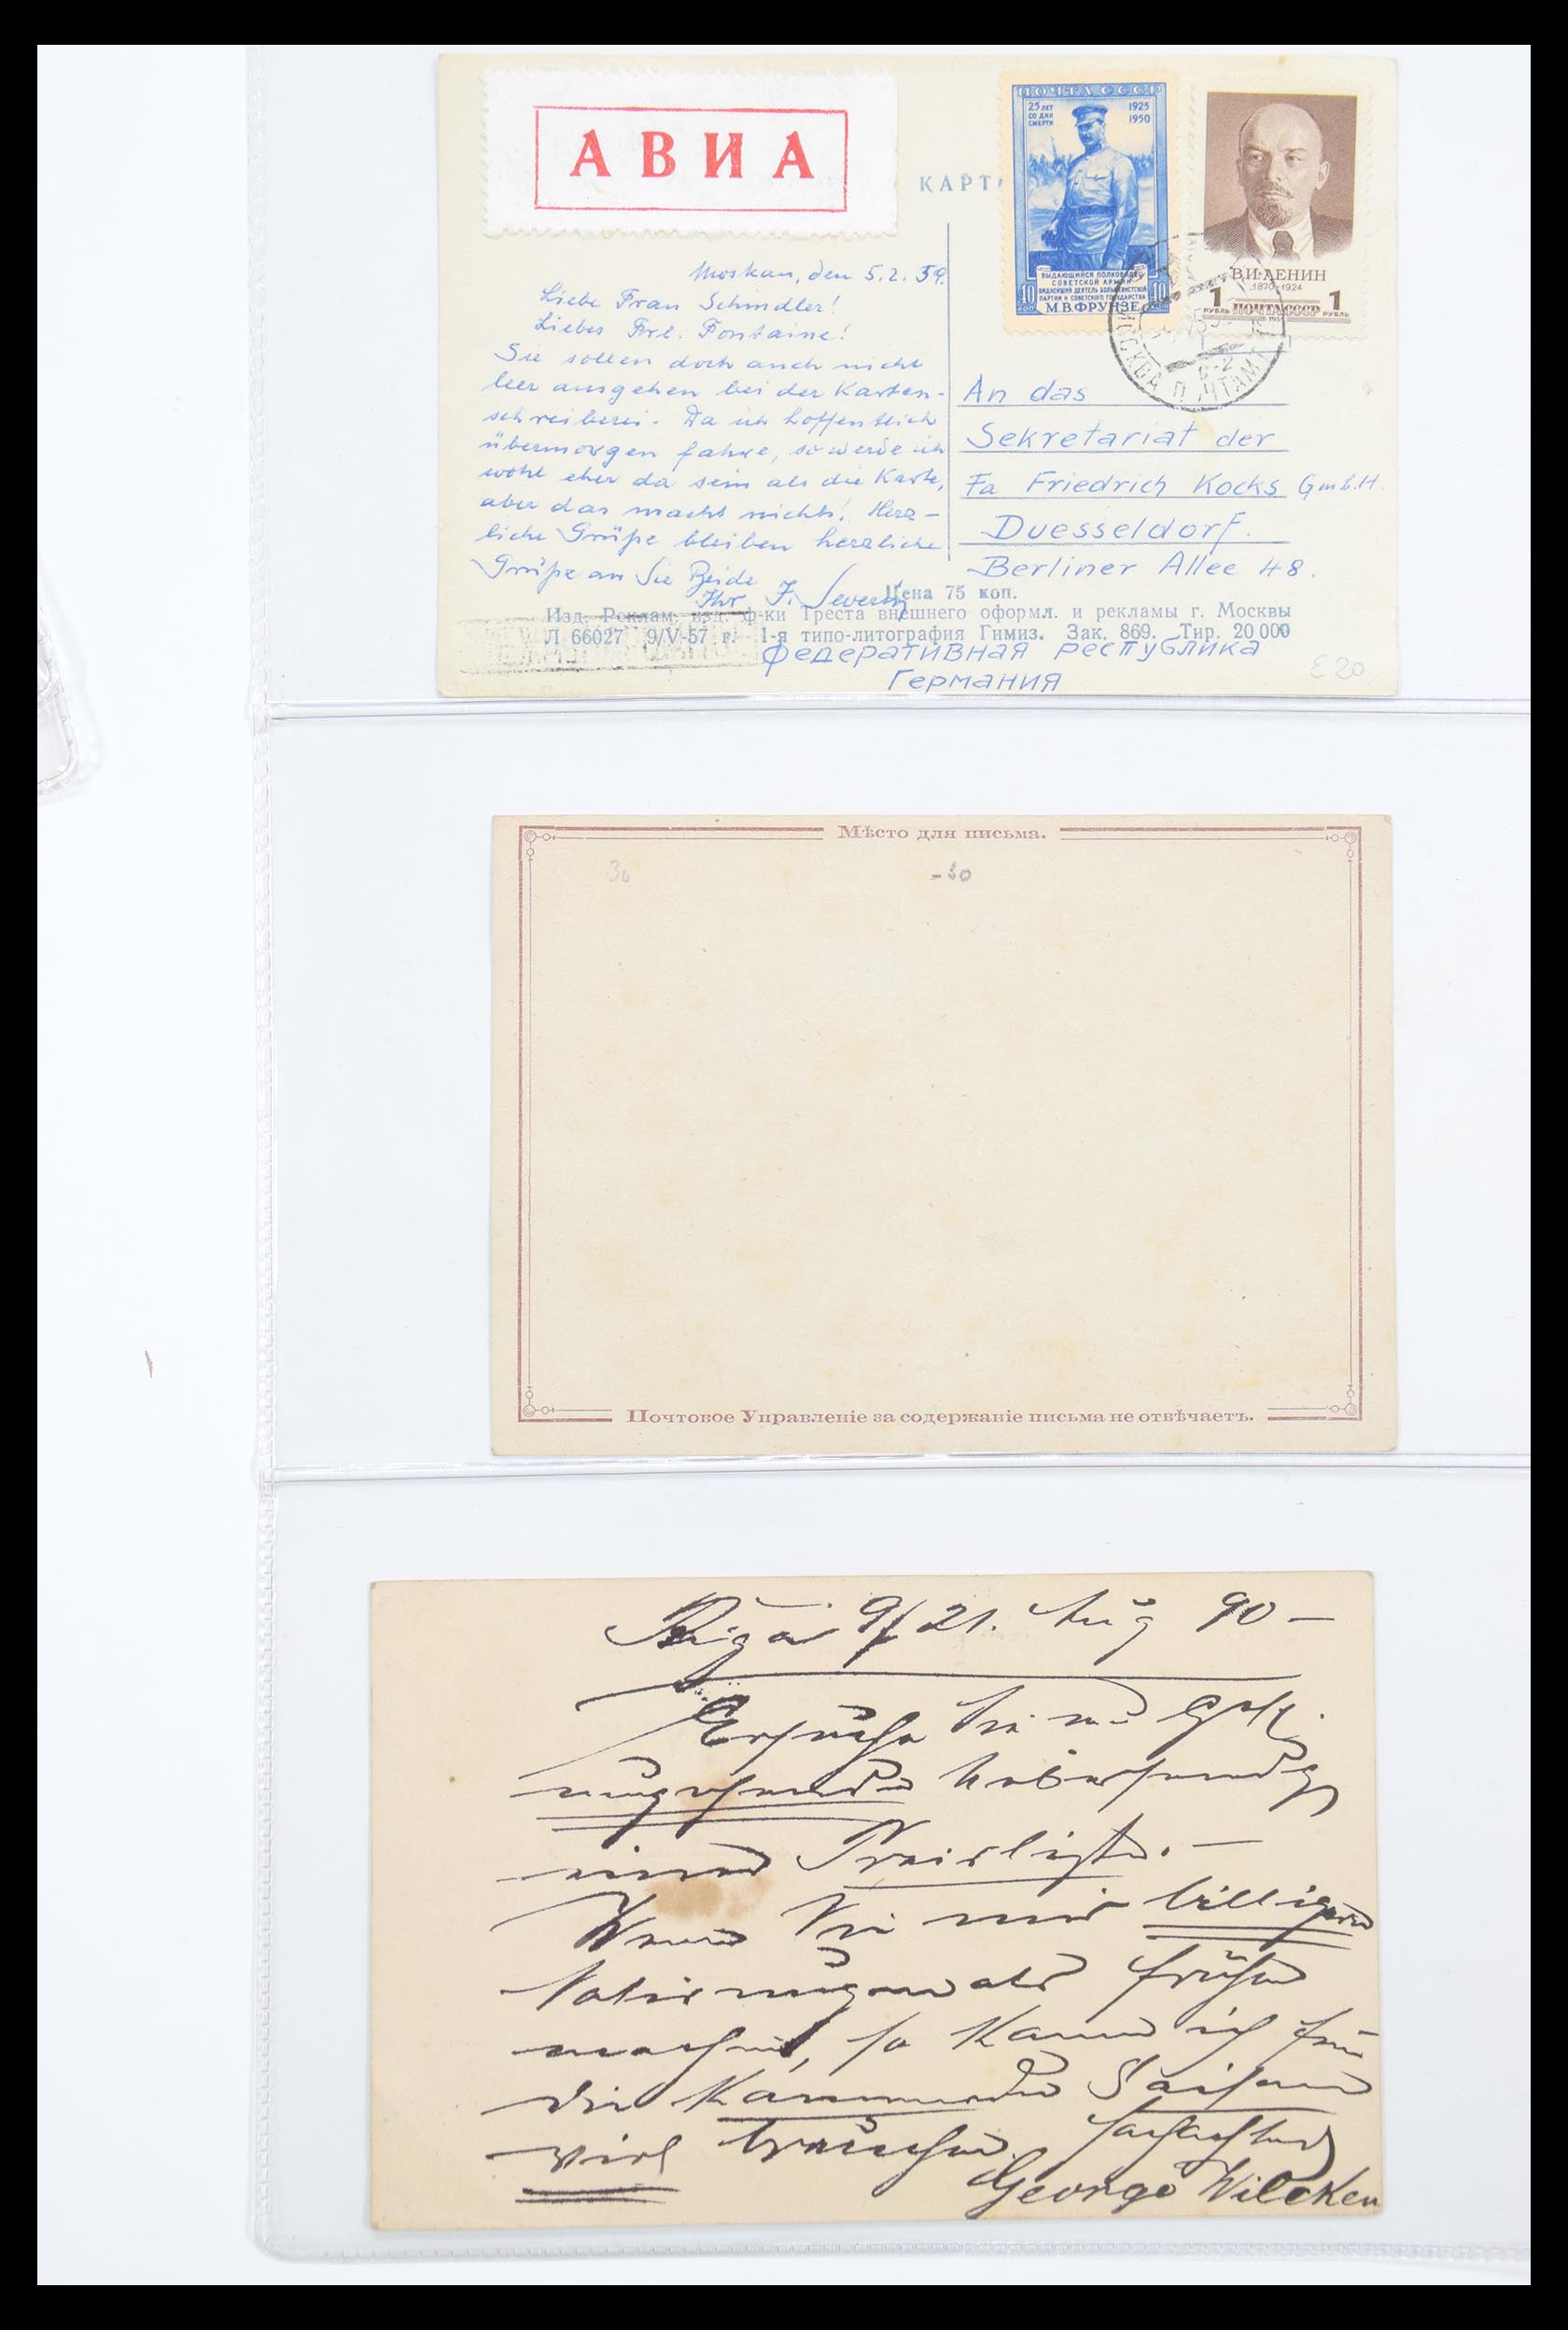 АВИА
КАРТ
ПОЧТА СССР
25 ЛЕТ СО ДНЯ СМЕРТИ
1925 1950
ВЫДАЮЩИЙСЯ ПОЛКОВОДЕЦ
СОВЕТСКОЙ АРМИИ
ВИДНЕЙШИЙ ДЕЯТЕЛЬ БОЛЬШЕВИСТСКОЙ
ПАРТИИ И СОВЕТСКОГО ГОСУДАРСТВА
М.В.ФРУНЗЕ
10 10
В.И.ЛЕНИН
1870-1924
1 РУБЛЬ ПОЧТА СССР 1 РУБЛЬ
МОСКВА
Moskau, den 5.2.59.
Liebe Frau Schindler!
Liebes Frl. Fontaine!
Sie sollen doch auch nicht
leer ausgehen bei der Karten-
schreiberei. Da ich hoffentlich
übermorgen fahre, so werde ich
wohl eher da sein als die Karte,
aber das macht nichts! Herz-
liche Grüße bleiben herzliche
Grüße an Sie Beide
Ihr J. Severin
An das
Sekretariat der
Fa Friedrich Kocks GmbH.
Duesseldorf.
Berliner Allee 48.
Цена 75 коп.
Изд. Реклам. изд. ф-ки Треста внешнего оформл. и рекламы г. Москвы
Л 66027 9/V-57 г. 1-я типо-литография Гимиз. Зак. 869. Тир. 20 000
Федеративная республика
Германия
E20
Мѣсто для письма.
30
-30
Почтовое Управленіе за содержаніе письма не отвѣчаетъ.
Riga 9/21. Aug 90 –
Ersuche Sie um Gefl.
umgehende Uebersendg
einer Preisliste. –
Wenn Sie mir billigere
Notirungen als früher
machen, so kann ich für
die kommende Saison
viel brauchen.
George Wilcken